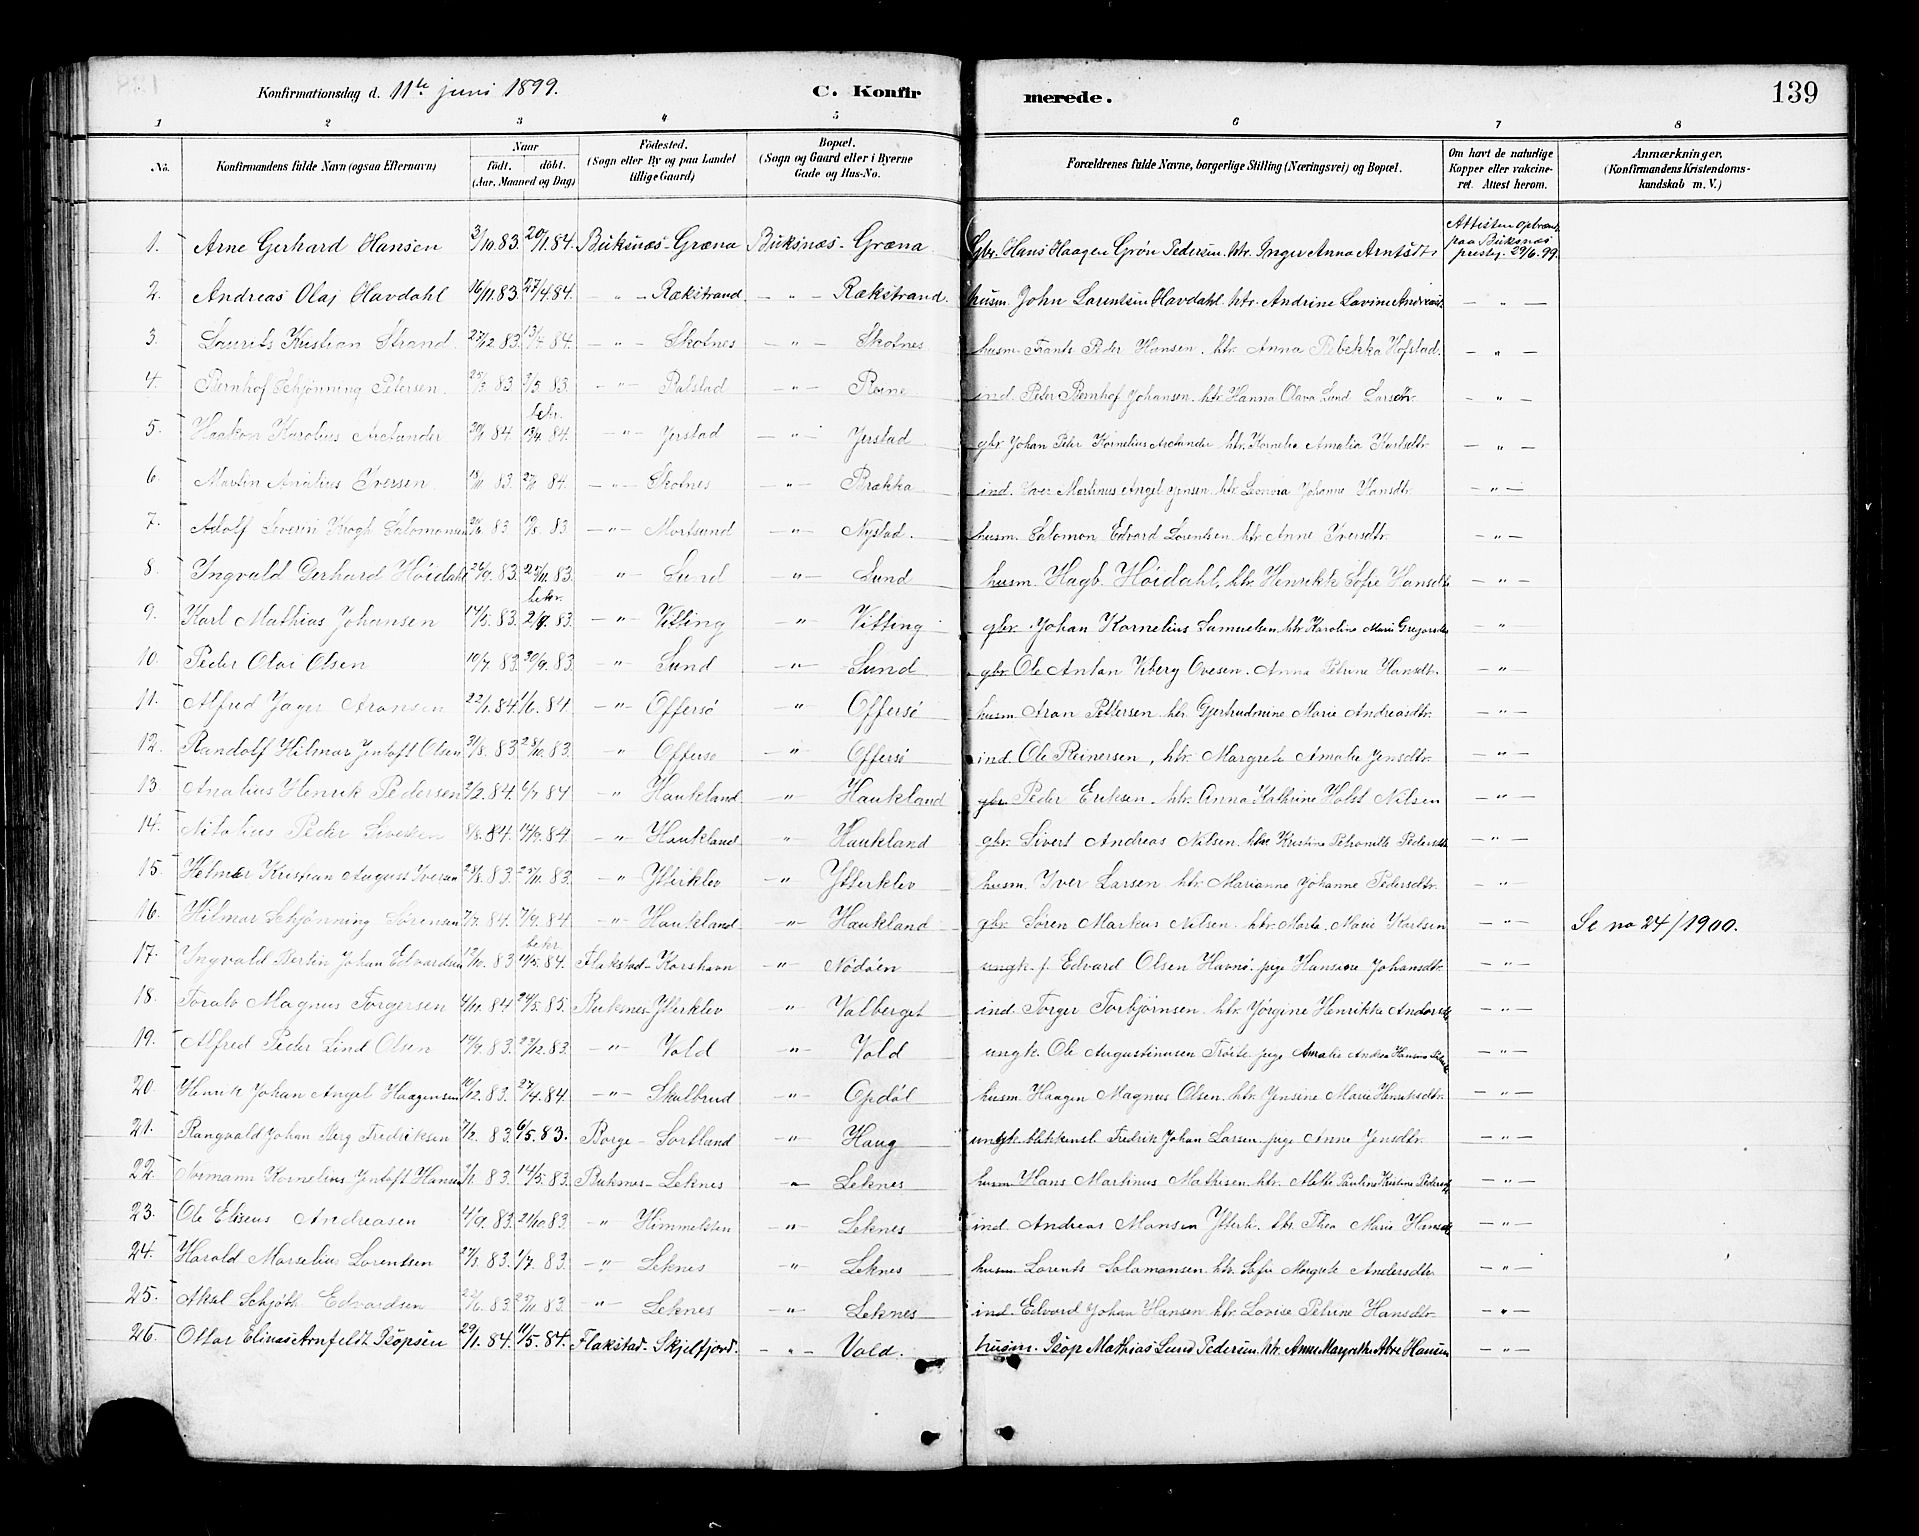 Konfirmationsdag d. 11te juni 1899. C. Konfirmerede. 139
1 2 3 4 5 6 7 8
No. Konfirmandens fulde Navn (ogsaa Efternavn) Naar födt. döbt. (Aar, Maaned og Dag) Födested. (Sogn eller By og paa Landet tillige Gaard) Bopæl. (Sogn og Gaard eller i Byerne Gade og Hus-No. Forældrenes fulde Navne, borgerlige Stilling (Næringsvei) og Bopæl. Om havt de naturlige Kopper eller vakcineret. Attest herom. Anmærkninger. (Konfirmandens Kristendomskundskab m. V.)
1. Arne Gerhard Hansen 3/10.83. 20/1.84. Buksnæs-Græna Buksnæs-Græna Gbr. Hans Haagen Grön Pedersen. htr. Inger Anna Arntsdtr. paa Buksnæs presteg. 29/6.99.
2. Andreas Olaj Havdahl 16/11.83. 27/4.84. — " — Rækstrand — " — Rækstrand. husm. John Larentsen Havdahl. htr. Andrine Lavine — " —
3. Laurits Kristian Strand 27/12.83. 13/7.84. — " — Skotnes — " — Skotnes husm. Frants Peder Hansen. htr. Anna Rebekka Hofstad. — " —
4. Bernhof Schjönning Petersen. 25/3.83 /5.83. — " — Balstad — " — Reine ind. Peter Bernhof Johansen. htr. Hanna Olava Lund Larsdtr. — " —
5. Haakon Karolius Arctander 20/1.84. bekr. 13/4.84. — " — Jerstad — " — Jerstad gbr. Johan Peder Kornelius Arctander htr. Kornelia Amalia Karlsdtr. — " —
6. Martin Iversen. 18/11 83. 27/1 84. — " — Skotnes — " — Brækka ind. Iver Martinus Angel Jensen. htr. Leonora Johanne Hansdtr. — " —
7. Adolf Severin Krogh Salomonsen 21/6.83 19/8.83. — " — Mortsund — " — Nystad. husm. Salomon Edvard Lorentsen. htr. Anne Iversdtr. — " —
8. Ingvald Gerhard Höidahl 26/9.83. 25/11.83. — " — Lund — " — Lund husm. Hagb. Höidahl, htr. Henrikk Sofie Hansdtr — " —
9. Karl Mathias Johansen 14/5.83. bekr. 2/9.83. — " — Vitting — " — Vitting gbr. Johan Kornelius Samuelsen htr. Karoline Marie — " —
10. Peder Olai Olsen 10/7.83. 30/9.83. — " — Lund — " — Lund gbr. Ole Antan Viberg Ovesen. Anna Petrine Hansdtr. — " —
11. Alfred Jager Aronsen 22/1.84. 1/6.84 — " — Offersö — " — Offersö husm. Aron Pettersen. htr. Gjertrudmine Marie Andreasdtr. — " —
12. Randolf Hilmar Jentoft Olsen 31/8.83. 28/10.83. — " — Offersö — " — Offersö ind. Ole Reinersen, htr. Margrete Amalie Jensdtr. — " —
13 Analius Henrik Pedersen 3/2.84. 6/7.84 — " — Haukland — " — Haukland gbr. Peder Eriksen. htr. Anna Kathrine Holst Nilsen — " —
14. Nitalius Peder Sivertsen 8/8.84. 14/9.84. — " — Haukland — " — Haukland gbr. Sivert Andreas Nilsen. htr. Kristine Petronille Pedersdtr — " —
15. Helmer Kristian August Iversen 28/8.83. 25/11.83. — " — Ytterklev — " — Ytterklev husm. Iver Larsen htr. Marianne Johanne Pedersdtr. — " —
16. Hilmar Schjönning Sörensen 7/7.84. 7/9.84. — " — Haukland — " — Haukland gbr. Sören Markus Nilsen. htr. Marta Marie Karlsen — " — Se no 24/1900.
17. Ingvald Bertin Johan Edvardsen 12/10.83 bekr 11/5.84. Flakstad-Korshavn — " — Nödöen ungk. f. Edvard Olsen Havnö. pige Hansine Johansdtr. — " —
18. Toralv Magnus Torgersen 4/10.84 24/5.85. Buksnes-Ytterklev — " — Valberget ind. Torger Torbjörnsen. htr. Jörgine Henrikke — " —
19. Alfred Peder Lind Olsen 19/9.83. 23/12.83. — " — Vold — " — Vold ungk. Ole Augustinusen Tröite. pige Amalie Andrea — " —
20. Henrik Johan Angel Haagensen 10/12.83. 27/4.84. — " — Skulbrud — " — Opdöl husm Haagen Magnus Olsen htr. Jensine Marie Henriksdtr. — " —
21. Rangvald Johan Berg Fredriksen 7/2.83. 6/5.83. Borge-Sortland — " — Haug ungk. Fredrik Johan Larsen. pige Anne Jensdtr. — " —
22. Normann Kornelius Jentoft Hansen 3/1.83. 14/5.83. Buksnes-Leknes — " — Leknes husm Hans Martinus Mathisen. htr. Mette Pauline Kristine Pedersdtr — " —
23. Ole Eliseus Andreasen 4/9.83. 21/10.83. — " — Himmelsten — " — Leknes ind. Andreas Hansen Ytterk. htr. Thea Marie Hansdtr — " —
24. Harald Marselius Lorentsen 27/3.83. 1/7.83. — " — Leknes — " — Leknes husm Lorents Salamonsen. htr. Sofie Margrete Andersdtr — " —
25. Aksel Schjöth Edvardsen 22/6.83. 25/11.83. — " — Leknes — " — Leknes ind. Edvard Johan Hansen htr. Lovise Petrine Hansdtr. — " —
26. Ottar Elinas Arnfeldt Isopsen 29/1.84. 11/5.84. Flakstad-Skjelfjord. — " — Vold. husm. Isop Mathias Lund Pedersen. htr. Anne Margrethe Abre Hansen — " —